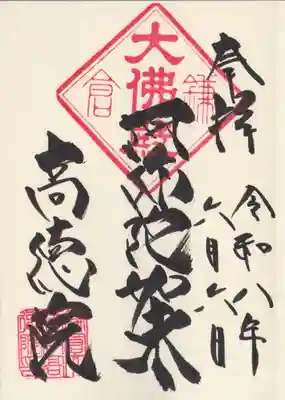 奉拝
令和八年
六月六日
鎌倉
大佛殿
阿弥陀如来
高徳院